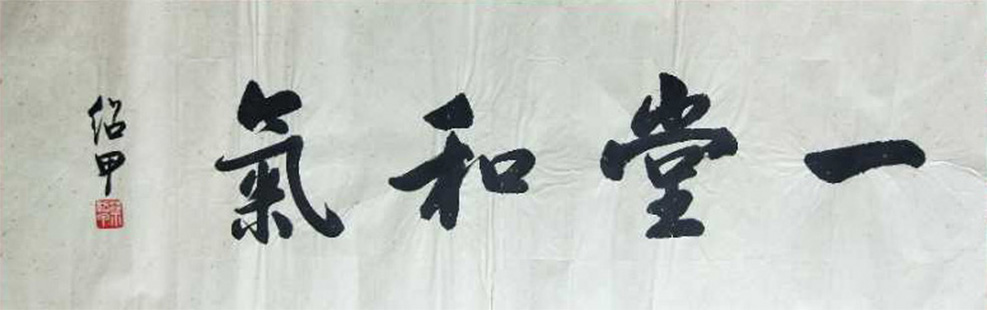 一堂和氣
绍甲